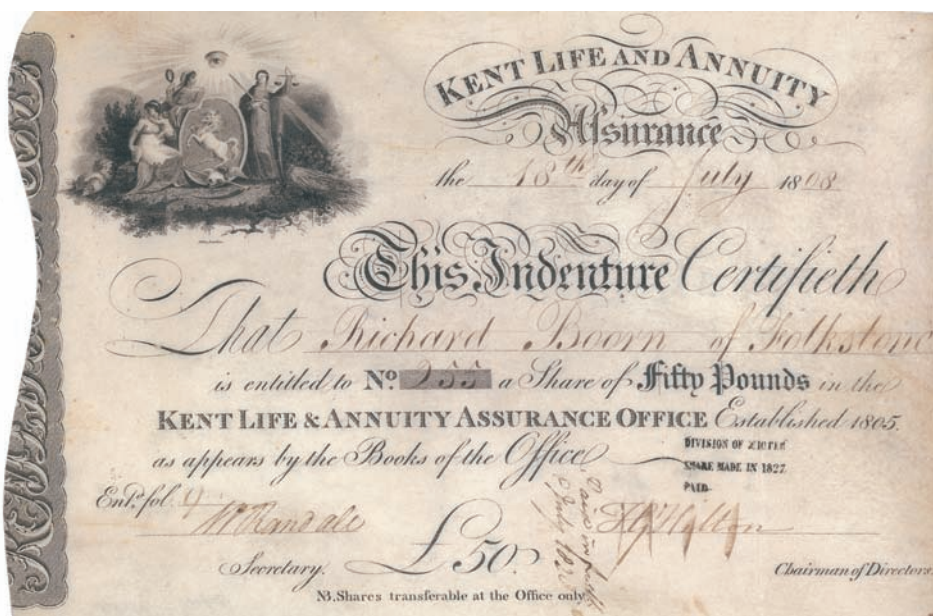 KENT LIFE AND ANNUITY
Assurance
the 18th day of July 1808
This Indenture Certifieth
That Richard Boorn of Folkstone
is entitled to No. 255 a Share of Fifty Pounds in the
KENT LIFE & ANNUITY ASSURANCE OFFICE Established 1805.
as appears by the Books of the Office
DIVISION OF
SHARE MADE IN 1827
PAID
Entd. fol. 4
Secretary.
£50
Paid in full
July 182
Chairman of Directors.
NB. Shares transferable at the Office only